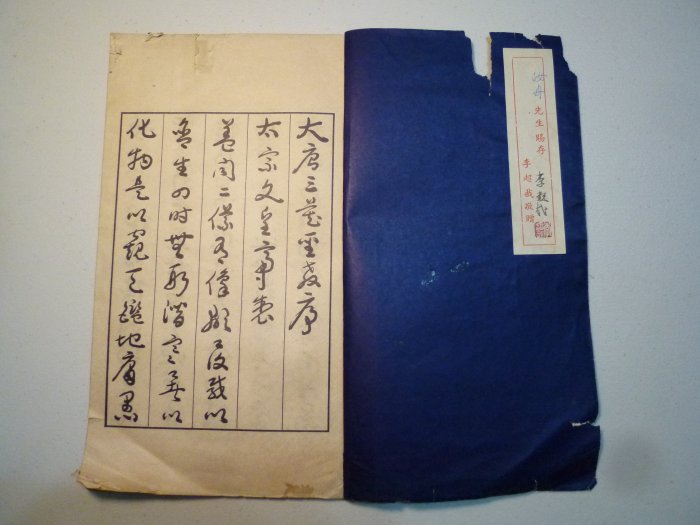 汝舟先生賜存
李超哉
李超哉敬贈
大唐三藏聖教序
太宗文皇帝製
蓋聞二儀有像顯覆載以
含生四時無形潛寒暑以
化物是以窺天鑑地庸愚